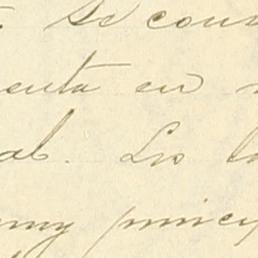 Se cons
enta en
al. Los la
muy princip